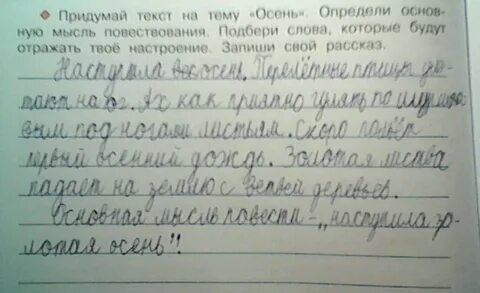 ◆ Придумай текст на тему «Осень». Определи основ-
ную мысль повествования. Подбери слова, которые будут
отражать твоё настроение. Запиши свой рассказ.
Наступила осень. Перелётные птицы уле-
тают на юг. Ах как приятно гулять по
под ногами листьям. Скоро пойдёт
первый осенний дождь. Золотая листва
падает на землю с ветвей деревьев.
Основная мысль повести - „наступила зо-
лотая осень"!